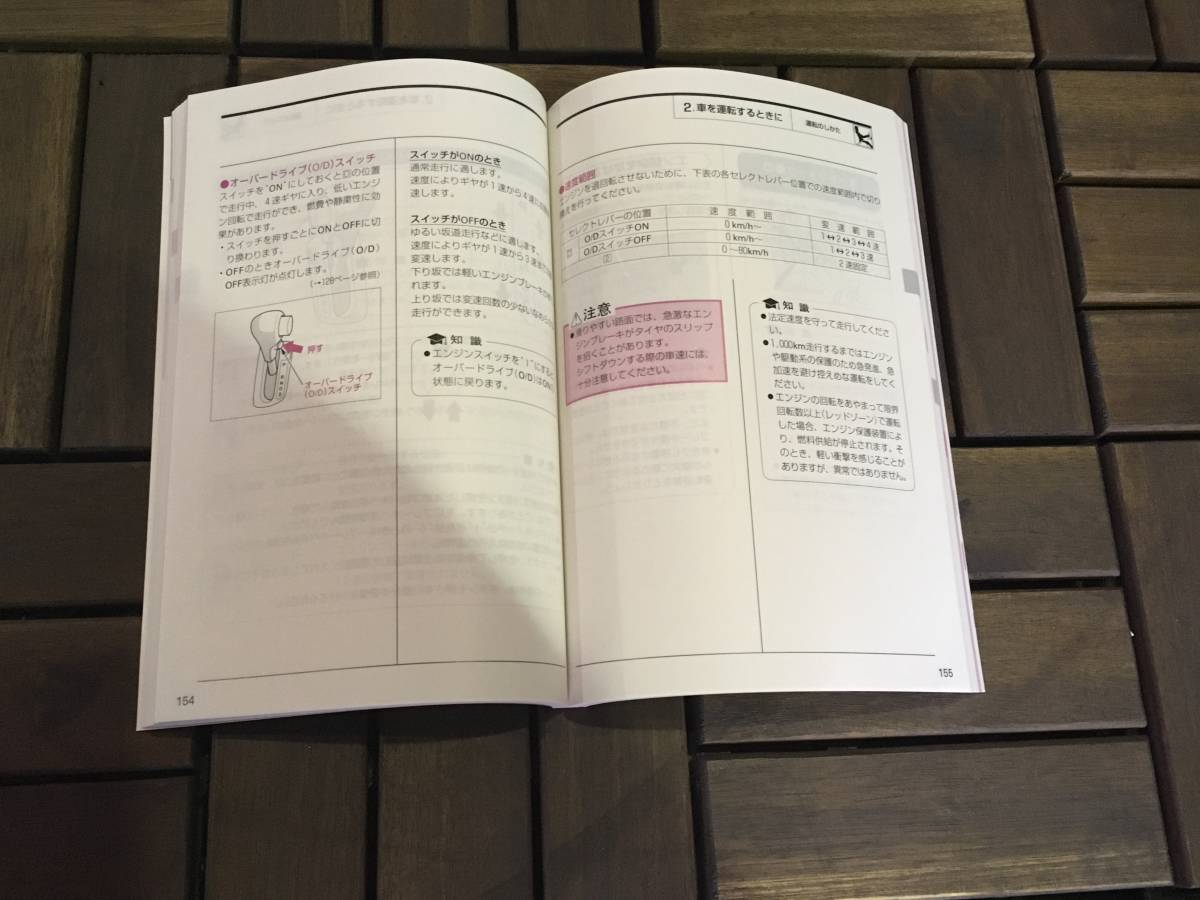 ●オーバードライブ(O/D)スイッチ
スイッチを"ON"にしておくとDの位置
で走行中、4速ギヤに入り、低いエンジ
ン回転で走行ができ、燃費や静粛性に効
果があります。
・スイッチを押すごとにONとOFFに切
り換わります。
・OFFのときオーバードライブ(O/D)
OFF表示灯が点灯します。
(→128ページ参照)
押す
オーバードライブ
(O/D)スイッチ
スイッチがONのとき
通常走行に適します。
速度によりギヤが1速から4速に
速します。
スイッチがOFFのとき
ゆるい坂道走行などに適します。
速度によりギヤが1速から3速
変速します。
下り坂では軽いエンジンブレーキ
れます。
上り坂では変速回数の少ないなめらか
走行ができます。
知識
●エンジンスイッチを"Ⅰ"にすると
オーバードライブ(O/D)はON
状態に戻ります。
154
2.車を運転するときに
運転のしかた
●速度範囲
エンジンを過回転させないために、下表の各セレクトレバー位置での速度範囲内で切り
換えを行ってください。
セレクトレバーの位置 速度範囲 変速範囲
D O/DスイッチON 0km/h〜 1↔2↔3↔4速
O/DスイッチOFF 0km/h〜 1↔2↔3速
2 0〜80km/h 2速固定
注意
●滑りやすい路面では、急激なエン
ジンブレーキがタイヤのスリップ
を招くことがあります。
シフトダウンする際の車速には、
十分注意してください。
知識
●法定速度を守って走行してくださ
い。
●1,000km走行するまではエンジン
や駆動系の保護のため急発進、急
加速を避け控えめな運転をしてく
ださい。
●エンジンの回転をあやまって限界
回転数以上(レッドゾーン)で運転
した場合、エンジン保護装置によ
り、燃料供給が停止されます。そ
のとき、軽い衝撃を感じることが
ありますが、異常ではありません。
155